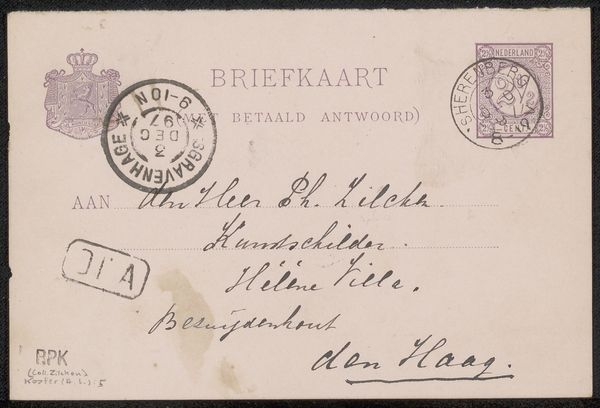 BRIEFKAART
BETAALD ANTWOORD)
NEDERLAND
2½
2½
CENT
'S GRAVENHAGE
9-10N
3
DEC
97
AAN den Heer Ph. Zilcken.
Kunstschilder.
Hélène Villa.
Bezuijdenhout
den Haag.
RPK
(Coll. Zilcken)
Koster (A. L.): 5